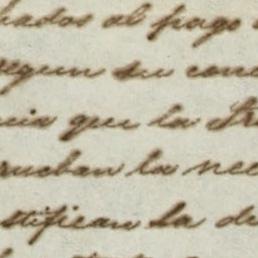 bados al pago
segun su conc
cia que la Tr
prueban la nec
stifican la de